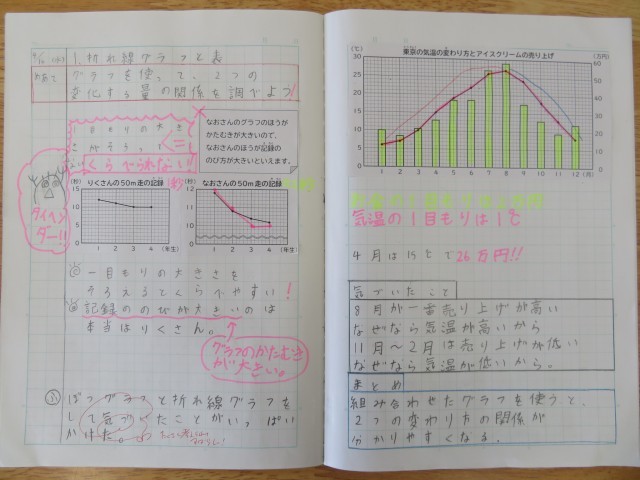 1. 折れ線グラフと表
めあて
グラフを使って、2つの
変化する量の関係を調べよう!
1目もりの大き
さがそろって
くらべられない!!
なおさんのグラフのほうが
かたむきが大きいので、
なおさんのほうが記録の
のび方が大きいといえます。
タイヘン
ダー!!
りくさんの50m走の記録
なおさんの50m走の記録
(秒)
12
10
5
0
1 2 3 4 (年生)
(秒)
1 2 3 4 (年生)
一目もりの大きさを
そろえるとくらべやすい!
記録ののびが大きいのは
本当はりくさん。
グラフのかたむき
が大きい。
ぼうグラフと折れ線グラフを
して気づいたことがいっぱい
かけた。
東京の気温の変わり方とアイスクリームの売り上げ
(℃)
(万円)
30
25
20
15
10
5
0
60
50
40
30
20
10
0
1 2 3 4 5 6 7 8 9 10 11 12 (月)
気温の1目もりは1℃
4月は15℃で26万円!!
気づいたこと
8月が一番売り上げが高い
なぜなら気温が高いから
11月〜2月は売り上げが低い
なぜなら気温が低いから。
まとめ
組みあわせたグラフを使うと、
2つの変わり方の関係が
分かりやすくなる。